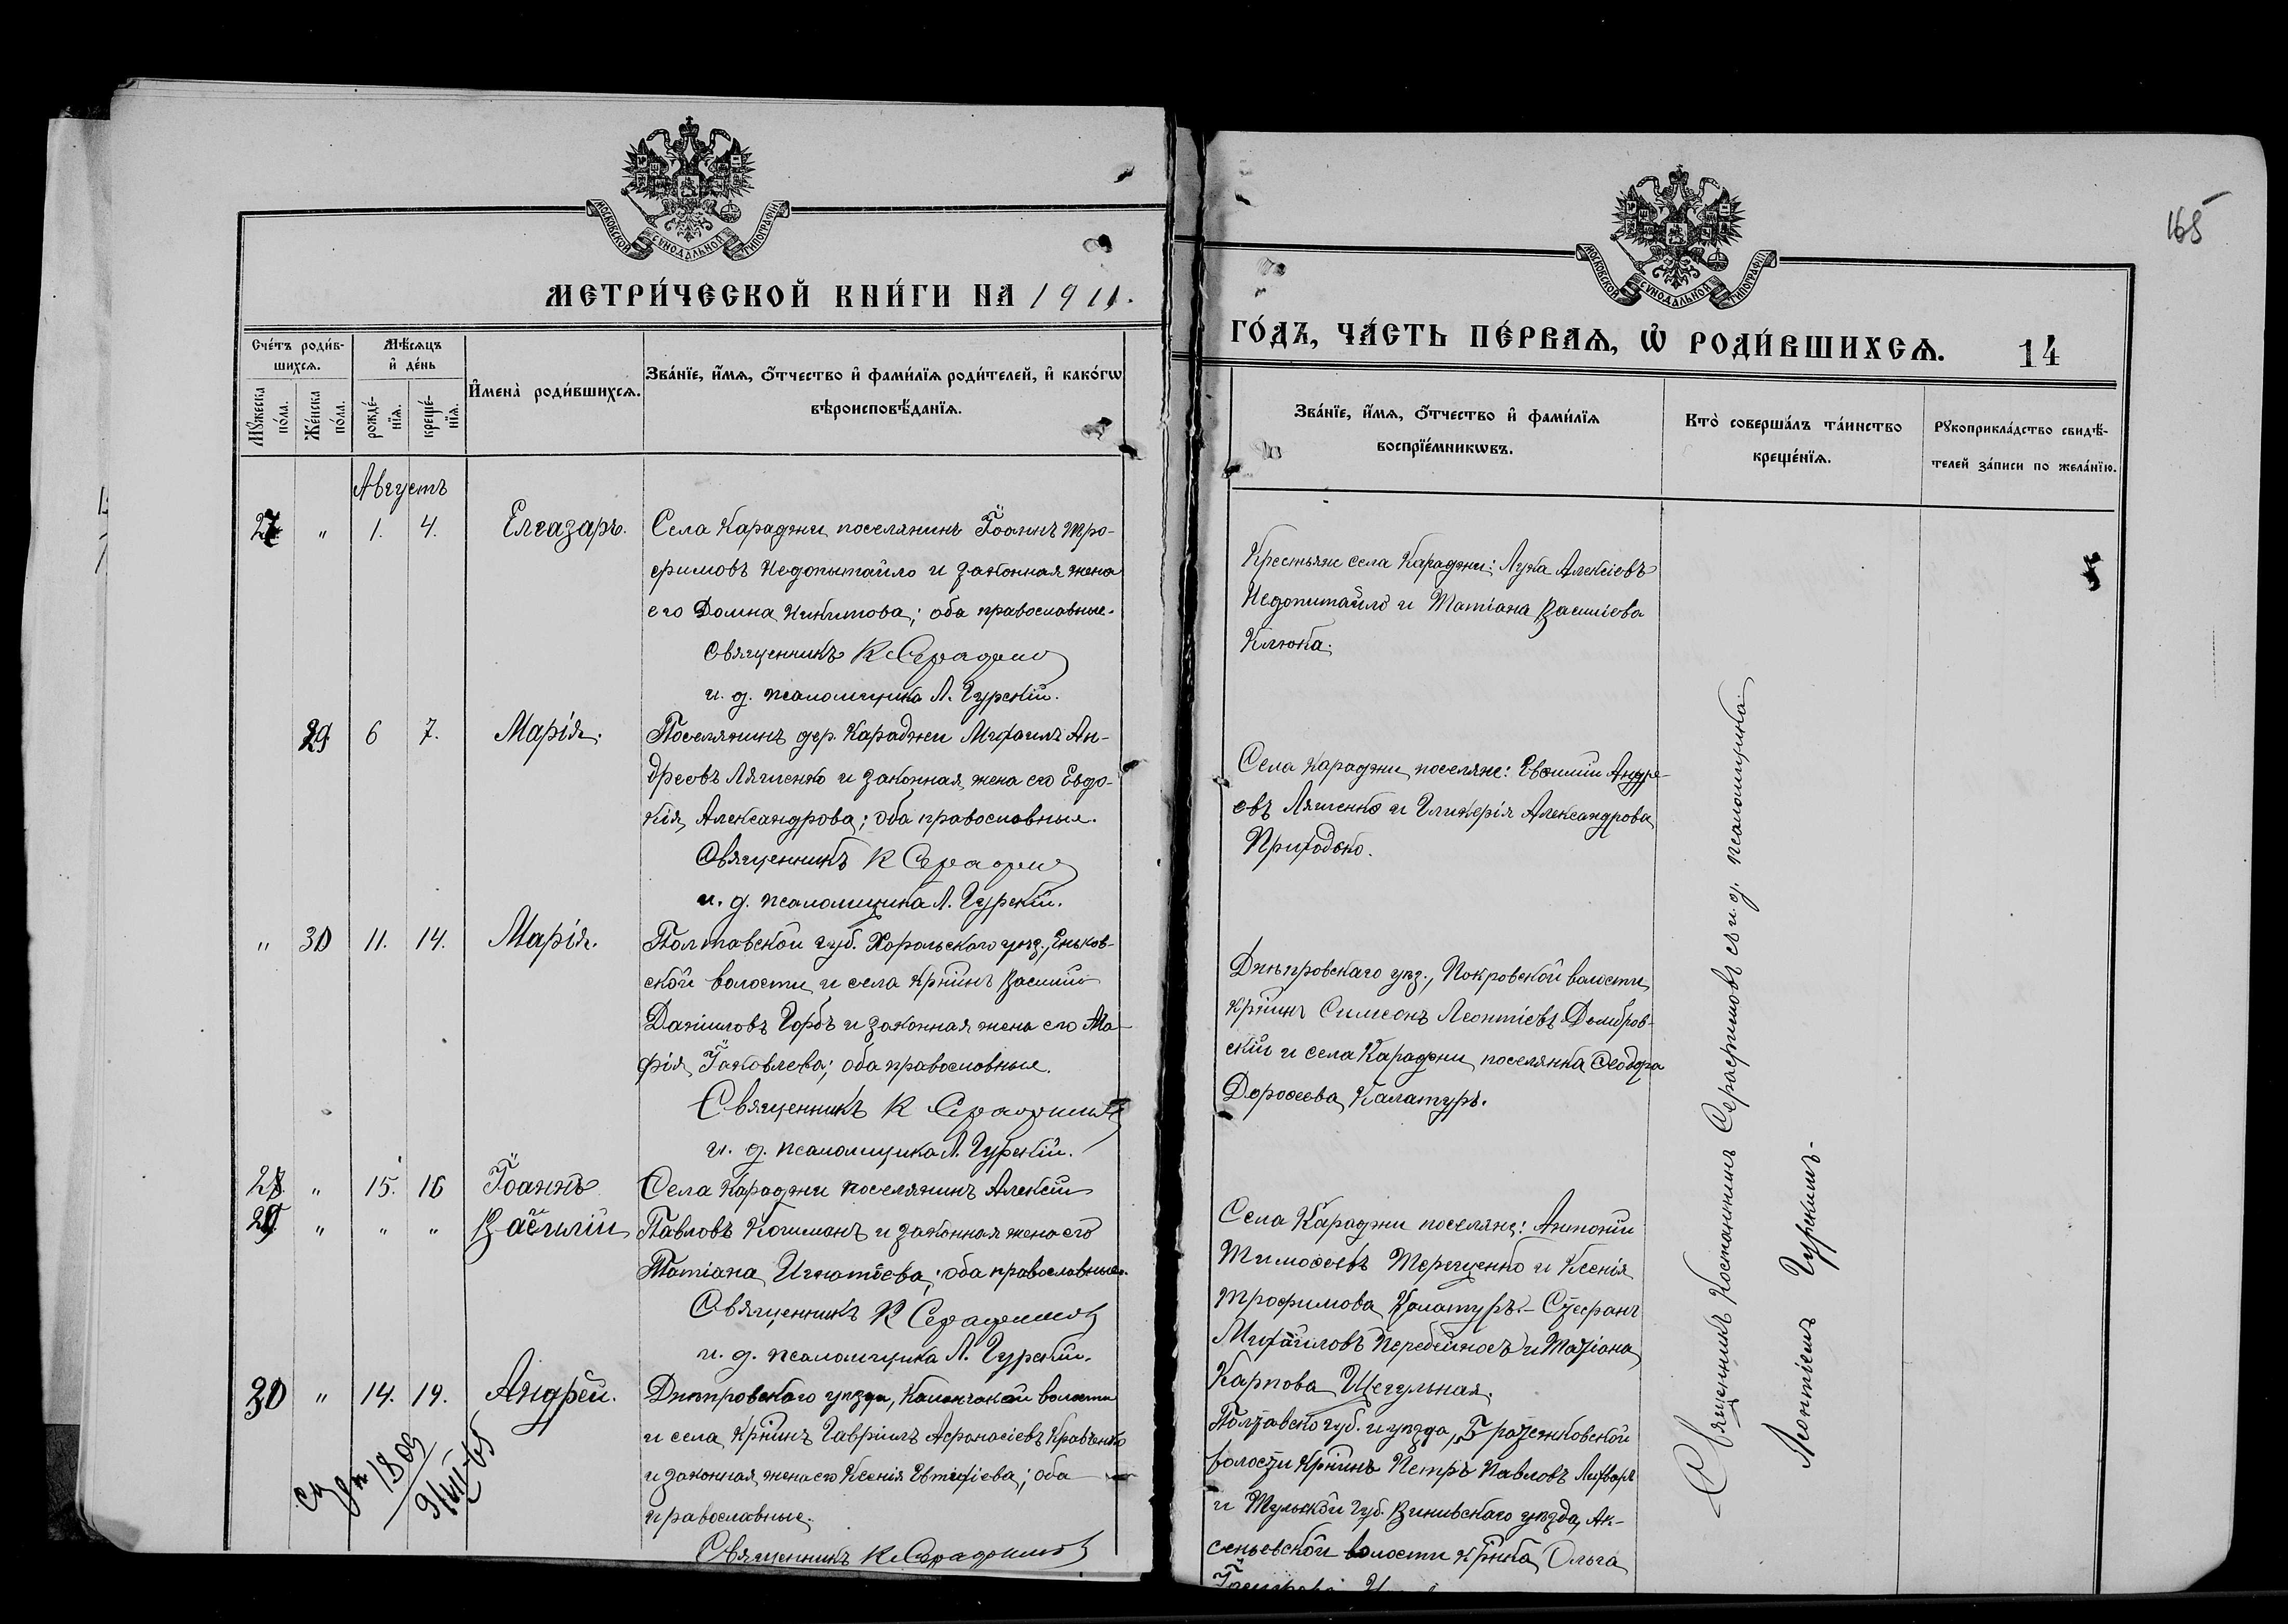 МОСКОВСКОЙ СѴНОДАЛЬНОЙ ТИПОГРАФІИ
МЕТРИ́ЧЕСКОЙ КНИ́ГИ НА 1911.
Сче́тъ роди́в-
шихсѧ.
Мꙋжеска по́ла.
Же́нска по́ла.
Мѣ́сѧцъ
и҆ де́нь
рожде́-
нїѧ.
креще́-
нїѧ.
И҆мена̀ роди́вшихсѧ.
Зва́нїе, и҆́мѧ, ѻ҆́тчество и҆ фами́лїѧ роди́телей, и҆ како́гѡ
вѣроисповѣ́данїѧ.
Августъ
27 " 1. 4. Елеазаръ. Села Караджи поселянинъ Іоаннъ Тро-
фимовъ Недопытайло и законная жена
его Домна Никитова; оба православные.
Священникъ К Серафимо
и. д. псаломщика Л. Гурскій.
29 6 7. Марія. Поселянинъ дер. Караджи Михаилъ Ан-
дреевъ Ляшенко и законная жена его Евдо-
кія Александрова; оба православные.
Священникъ К Серафимо
и. д. псаломщика Л. Гурскій.
" 30 11. 14. Марія. Полтавской губ. Хорольскаго уѣз., Еньков-
ской волости и села крнинъ Василій
Даніиловъ Горбъ и законная жена его Ма-
рія Іаковлева; оба православные.
Священникъ К Серафимов
и. д. псаломщика Л. Гурскій.
28 " 15. 16 Іоаннъ Села Караджи поселянинъ Алексій
29 " " " Василій Павловъ Кошманъ и законная жена его
Татіана Игнатіева; оба православные.
Священникъ К Серафимов
и. д. псаломщика Л. Гурскій.
30 " 14. 19. Андрей. Днѣпровскаго уѣзда, Каланчакой волости
и села крнинъ Гавріилъ Афанасіевъ Кравченко
и законная жена его Ксенія Евтихіева; оба
православные.
Священникъ К Серафимов
1809
165
МОСКОВСКОЙ СѴНОДАЛЬНОЙ ТИПОГРАФІИ
ГО́ДЪ, ЧА́СТЬ ПЕ́РВАѦ, Ѡ҆ РОДИ́ВШИХСѦ. 14
Зва́нїе, и҆́мѧ, ѻ҆́тчество и҆ фами́лїѧ
воспрїе́мникѡвъ.
Кто̀ соверша́лъ та́инство
креще́нїѧ.
Рꙋкоприкла́дство свидѣ́-
телей за́писи по жела́нїю.
Крестьяне села Караджи: Лука Алексіевъ
Недопитайло и Татіана Василіева
Клюка.
Села Караджи поселяне: Евѳимій Андре-
евъ Ляшенко и Гликерія Александрова
Приходько.
Днѣпровскаго уѣз., Покровской волости
крнинъ Симеонъ Леонтіевъ Домбров-
скій и села Караджи поселянка Ѳеодора
Дороѳеева Калатуръ.
Села Караджи поселяне: Антоній
Тимоѳеевъ Терещенко и Ксенія
Трофимова Калатуръ. - Стефанъ
Михаиловъ Перебейносъ и Татіана
Карпова Щегульная.
Полтавской губ. и уѣзда,
волости крнинъ Петръ Павловъ Лихваръ
и Тульской губ. уѣзда, Ак-
сеньевской волости крнка Ольга
Священникъ Константинъ Серафимовъ съ и. д. псаломщика
Леонтіемъ Гурскимъ.